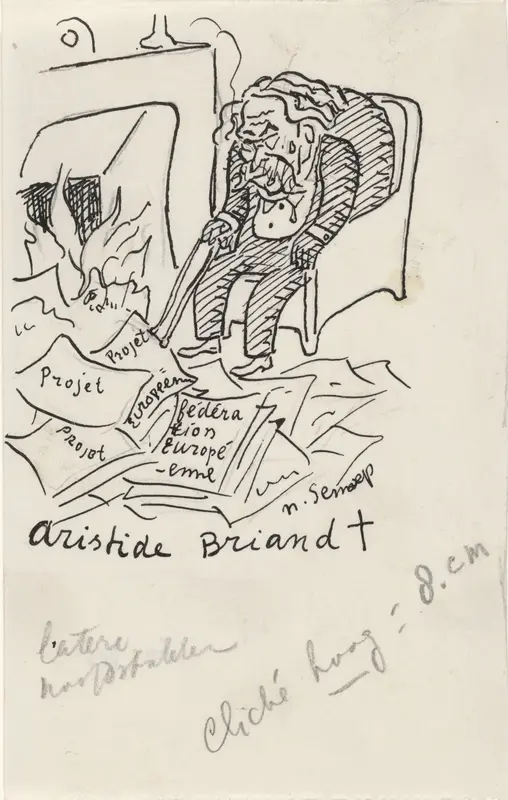 Projet
Projet
Européen
Projet
fédéra
tion
Europé
-enne
aristide Briand †
latere
cliché hoog: 8. cm